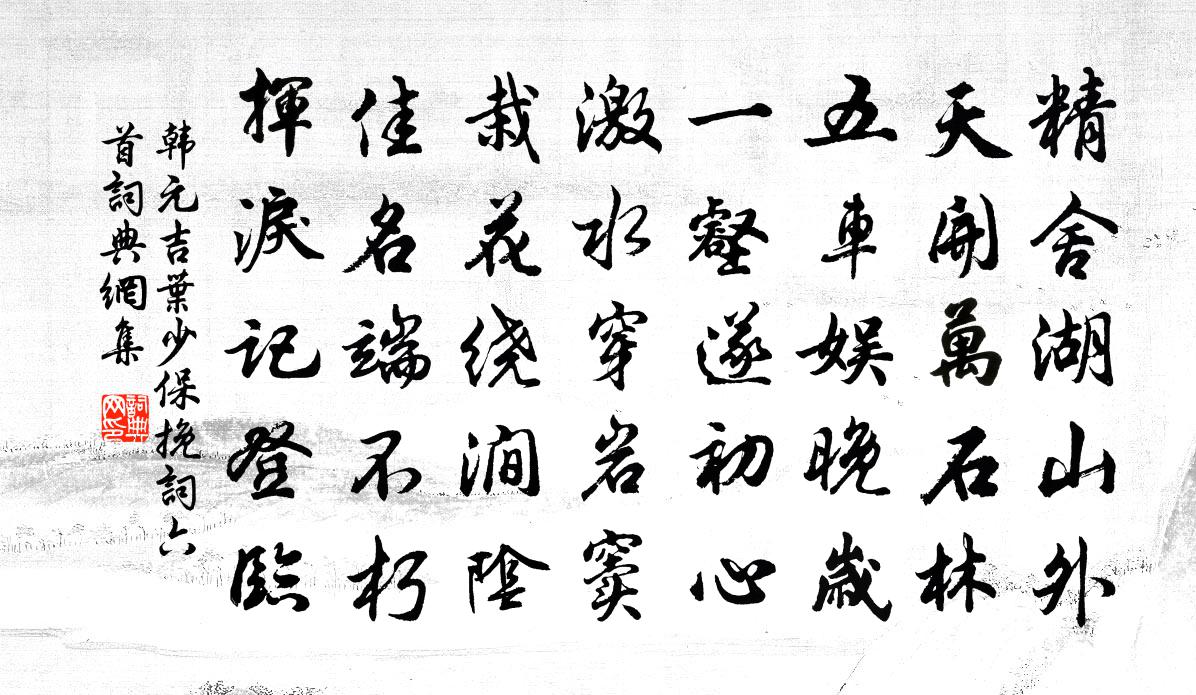 精舍湖山外
天開萬石林
五車娱晚歲
一壑遂初心
激水穿岩竇
栽花绕澗陰
佳名端不朽
揮淚记登臨
韩元吉葉少保挽詞六
首詞典網集
詞典
网印